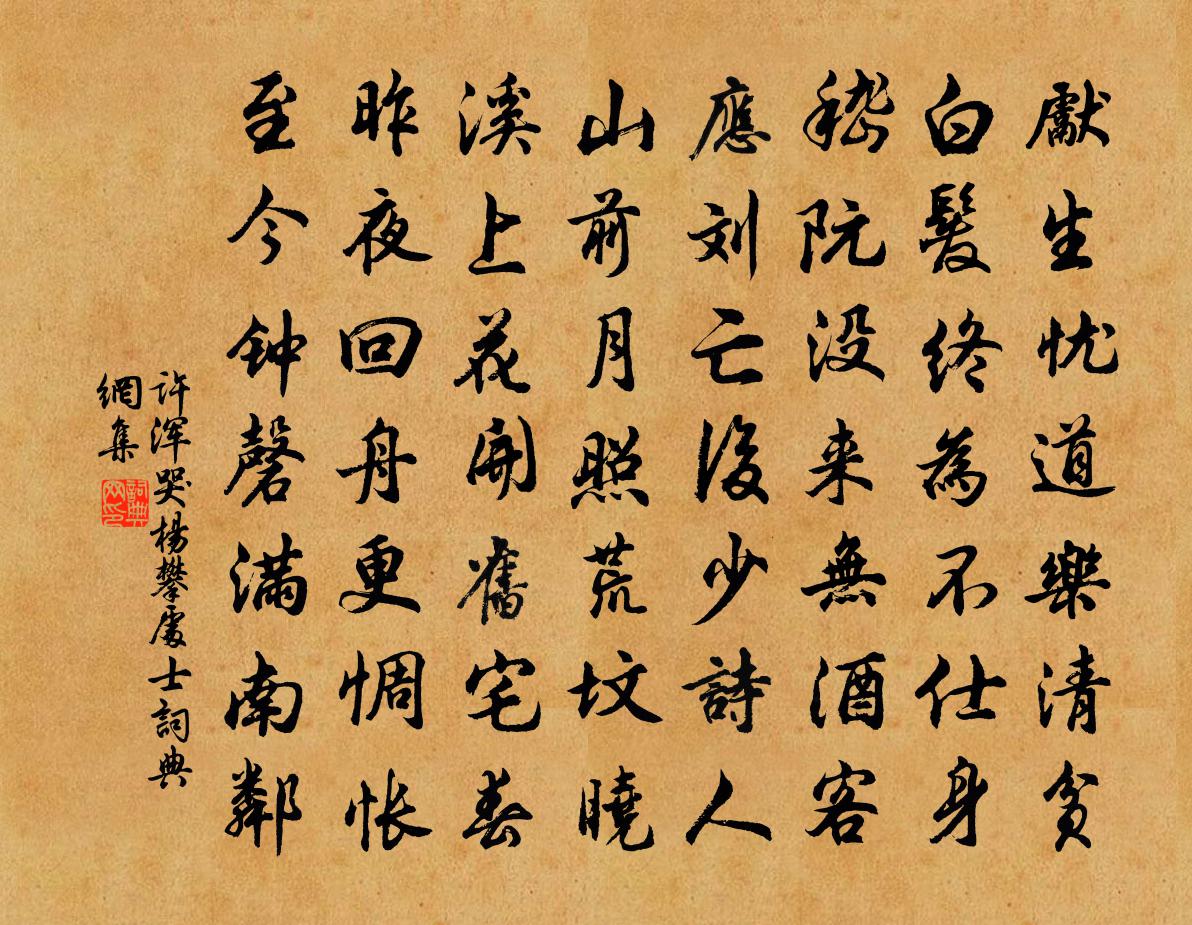 獻生忧道樂清貧
白髮終為不仕身
嵇阮没来無酒客
應刘亡後少詩人
山前月照荒坟曉
溪上花開舊宅春
昨夜回舟更惆怅
至今钟磬满南鄰
许浑哭楊攀處士詞典
網集
詞典
网印